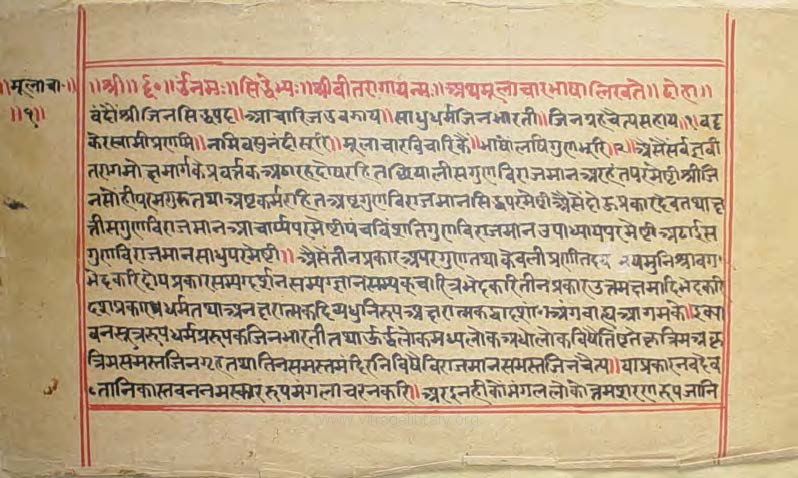 ॥मूलाचा॰
॥१॥
॥श्री॥ र्द्द॰॥ र्उनमः॥ सिद्धेभ्यः॥ श्रीवीतरागायनमः॥ अथमूलाचारभाषालिख्यते॥ दोहा॥
वंदौंश्रीजिनसिद्धपद॥ आचारिजउवझाय॥ साधुधर्मजिनभारती॥ जिनग्रहचैत्यसहाय॥१॥ वट्ट
केरस्वामीप्रणमि॥ नमिवसुनंदीसूरि॥ मूलाचारविचारिकैं॥ भाषौंलषिगुणभूरि॥२॥ अैसैसर्वज्ञवी
तरागमोक्षमार्गकेप्रवर्त्तकअठारहदोषरहितछियालीसगुणविराजमानअरहंतपरमेष्ठीश्रीजि
तथाअष्टकर्मरहितअष्टगुणविराजमानसिद्धपरमेष्ठीअैसेंदोऊप्रकारदेवतथाछ
त्तीसगुणविराजमानआचार्यपरमेष्ठीपंचविंशतिगुणविराजमानउपाध्यायपरमेष्ठीअठाईस
गुणविराजमानसाधुपरमेष्ठी॥ अैसेंतीनप्रकारअपरगुणतथाकेवलीप्रणीत मुनिश्रावग
भेदकरिदोयप्रकारसम्यग्दर्शनसम्यग्ज्ञानसम्यक्चारित्रभेदकरितीनप्रकारउत्तमक्षमादिभेदकरि
दशप्रकार धर्मतथाअनक्षरात्मकदिव्यधुनिरूपअक्षरात्मकद्वादशांगअंगवाह्यआगमके
वनसूत्ररूपधर्मप्ररूपकजिनभारतीतथाऊर्द्धलोकमध्यलोकअधोलोकविषैतिष्ठतेकृत्रिमअकृ
त्रिमसमस्तजिनगृहतथातिनसमस्तमंदिरनिविषैविराजमानसमस्तजिनचैत्य॥ याप्रकारनवदेव
तानिकास्तवननमस्काररूपमंगलाचरनकरि॥ अरइनहीकोमंगललोकोत्तमशरणरूपजानि
www.vitragalibrary.org